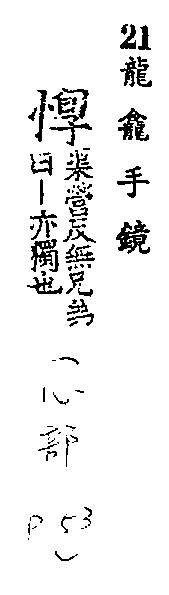 21龍龕手鏡
惸渠營反無兄弟
曰丨亦獨也
(心部 P53)